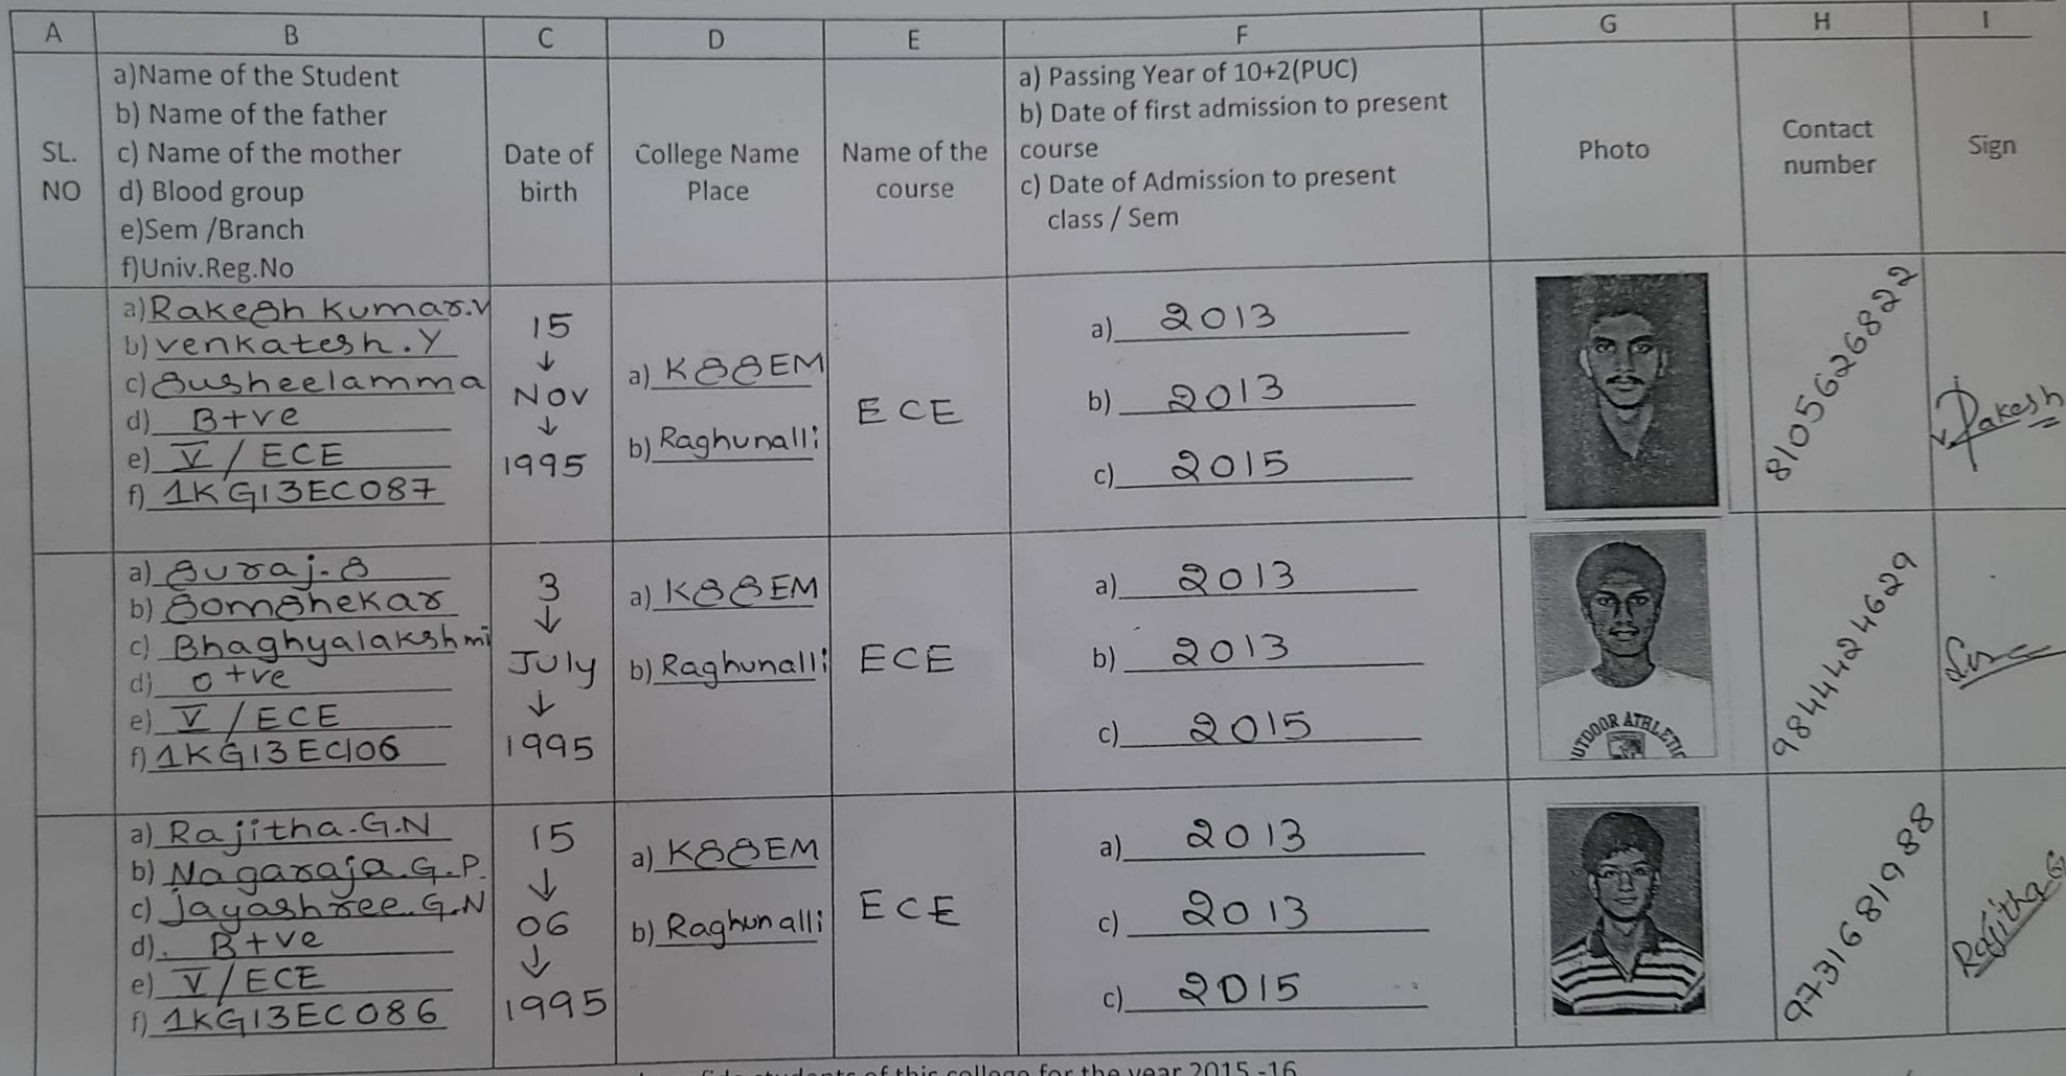 A B C D E F G H I
SL. NO
a)Name of the Student
b) Name of the father
c) Name of the mother
d) Blood group
e)Sem /Branch
f)Univ.Reg.No
Date of
birth
College Name
Place
Name of the
course
a) Passing Year of 10+2(PUC)
b) Date of first admission to present
course
c) Date of Admission to present
class / Sem
Photo
Contact
number
Sign
a) Rakesh Kumar.V
b) venkatesh.Y
c) Susheelamma
d) B+ve
e) V / ECE
f) 1KG13EC087
15
↓
Nov
↓
1995
a) KSSEM
b) Raghunalli
ECE
a) 2013
b) 2013
c) 2015
8105626822
Rakesh
a) Suraj.S
b) Somshekar
c) Bhaghyalakshmi
d) o +ve
e) V / ECE
f) 1KG13EC106
3
↓
July
↓
1995
a) KSSEM
b) Raghunalli
ECE
a) 2013
b) 2013
c) 2015
UTDOOR ATHLETIC
9844424629
a) Rajitha.G.N
b) Nagaraja.G.P.
c) Jayashree.G.N
d). B+ve
e) V / ECE
f) 1KG13EC086
15
↓
06
↓
1995
a) KSSEM
b) Raghunalli
ECE
a) 2013
c) 2013
c) 2015
9731681988
Rajitha G
students of this college for the year 2015 -16